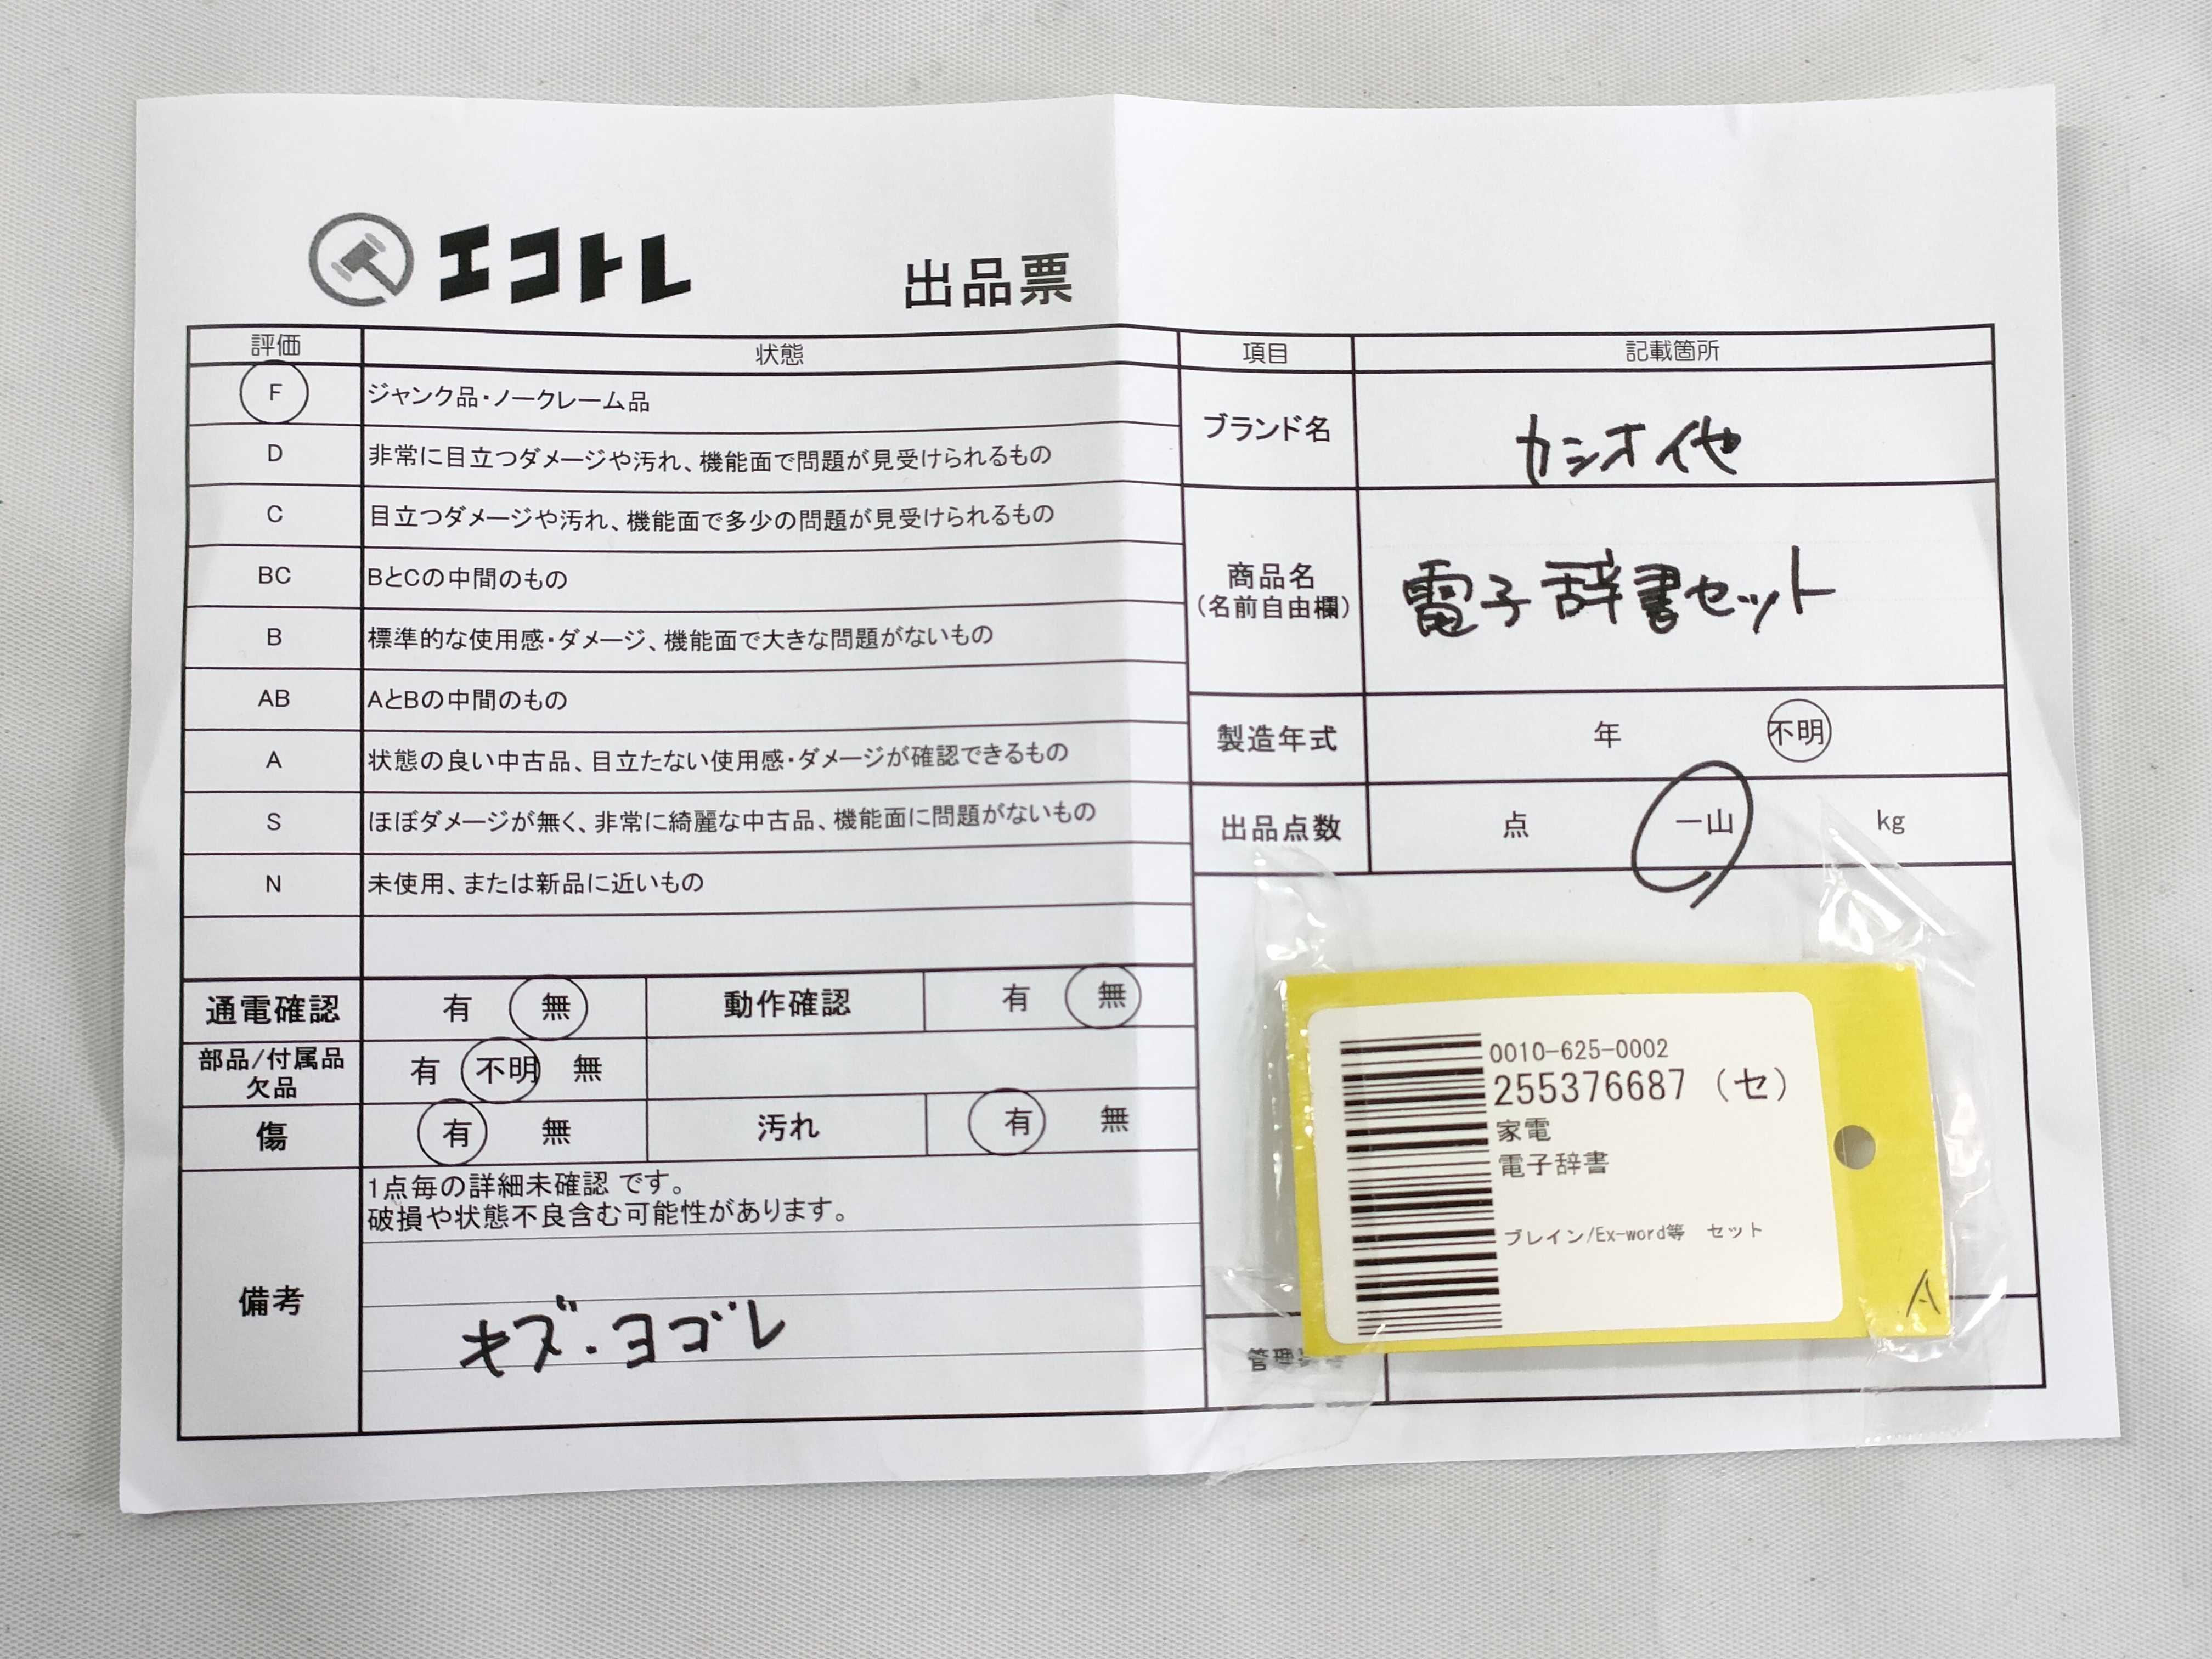 エコトレ
出品票
評価 状態
F ジャンク品・ノークレーム品
D 非常に目立つダメージや汚れ、機能面で問題が見受けられるもの
C 目立つダメージや汚れ、機能面で多少の問題が見受けられるもの
BC BとCの中間のもの
B 標準的な使用感・ダメージ、機能面で大きな問題がないもの
AB AとBの中間のもの
A 状態の良い中古品、目立たない使用感・ダメージが確認できるもの
S ほぼダメージが無く、非常に綺麗な中古品、機能面に問題がないもの
N 未使用、または新品に近いもの
通電確認 有 無 動作確認 有 無
部品/付属品
欠品
有 不明 無
傷 有 無 汚れ 有 無
備考
1点毎の詳細未確認 です。
破損や状態不良含む可能性があります。
キズ・ヨゴレ
項目 記載箇所
ブランド名 カシオ他
商品名
(名前自由欄)
電子辞書セット
製造年式 年 不明
出品点数 点 一山 kg
0010-625-0002
255376687 (セ)
家電
電子辞書
ブレイン/Ex-word等 セット
A
管理番号